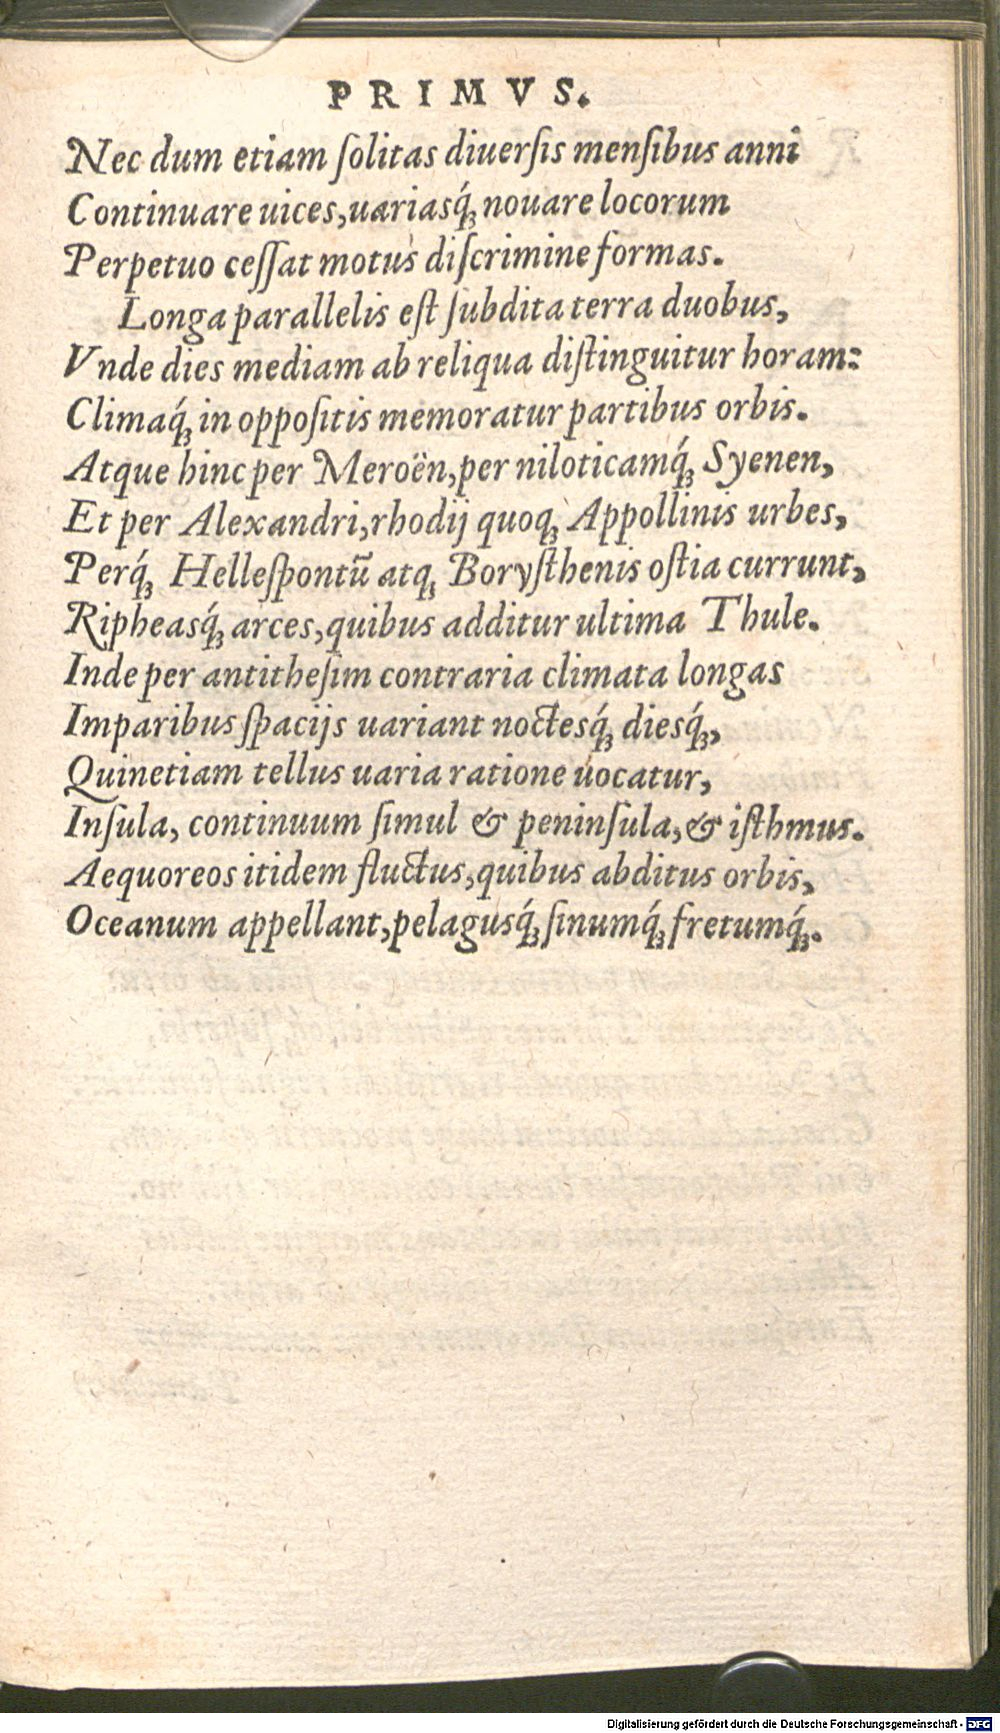 PRIMVS.
Nec dum etiam ſolitas diuerſis menſibus anni
Continuare uices, uariasq́ꝫ nouare locorum
Perpetuo ceſſat motus diſcrimine formas.
Longa parallelis eſt ſubdita terra duobus,
Vnde dies mediam ab reliqua diſtinguitur horam:
Climaq́ꝫ in oppoſitis memoratur partibus orbis.
Atque hinc per Meroën, per niloticamq́ꝫ Syenen,
Et per Alexandri, rhodij quoqꝫ Appollinis urbes,
Perq́ꝫ Helleſpontū atqꝫ Boryſthenis oſtia currunt,
Ripheasq́ꝫ arces, quibus additur ultima Thule.
Inde per antitheſim contraria climata longas
Imparibus ſpacijs uariant noctesq́ꝫ diesq́ꝫ,
Quinetiam tellus uaria ratione uocatur,
Inſula, continuum ſimul & peninſula, & iſthmus.
Aequoreos itidem fluctus, quibus abditus orbis,
Oceanum appellant, pelagusq́ꝫ ſinumq́ꝫ fretumq́ꝫ.
Digitalisierung gefördert durch die Deutsche Forschungsgemeinschaft - DFG